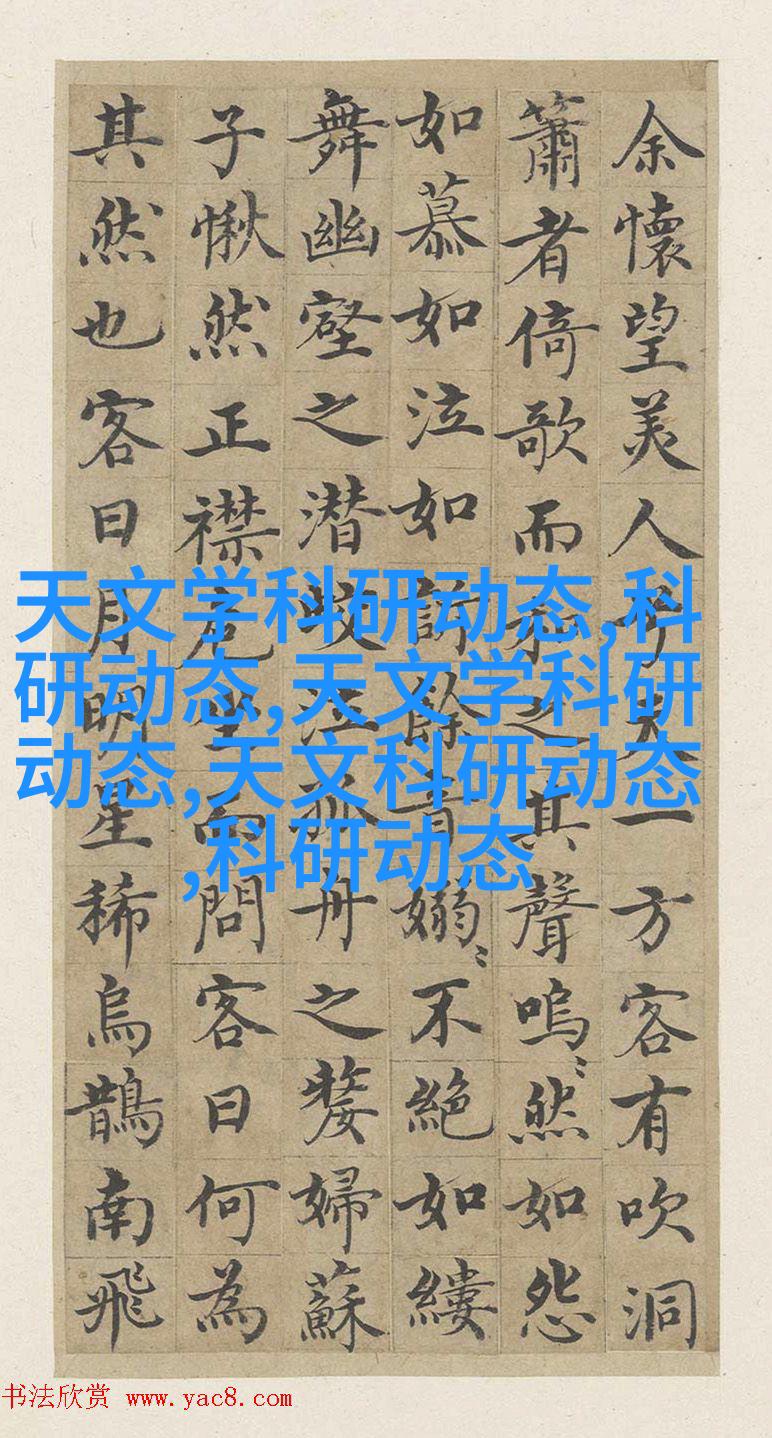 余懷望美人兮天一方客有吹洞
簫者倚歌而和之其聲嗚〻然如怨
如慕如泣如訴餘音嫋〻不絕如縷
舞幽壑之潛蛟泣孤舟之嫠婦蘇
子愀然正襟危坐而問客曰何為
其然也客曰月明星稀烏鵲南飛
天文学科研动态,科
研动态,天文学科研
动态,天文科研动态
,科研动态
书法欣赏 www.yac8.com